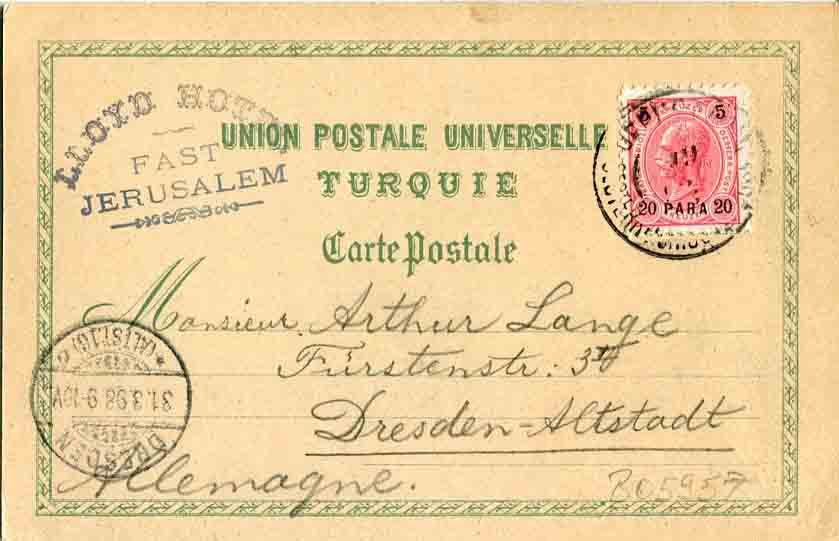 LLOYD HOTEL
FAST
JERUSALEM
UNION POSTALE UNIVERSELLE
TURQUIE
Carte Postale
5
20 PARA 20
Monsieur Arthur Lange
Fürstenstr: 3
Dresden-Altstadt
Allemagne.
*(ALTST.16)
31.3.98.9-10V
DRESDEN
B05957